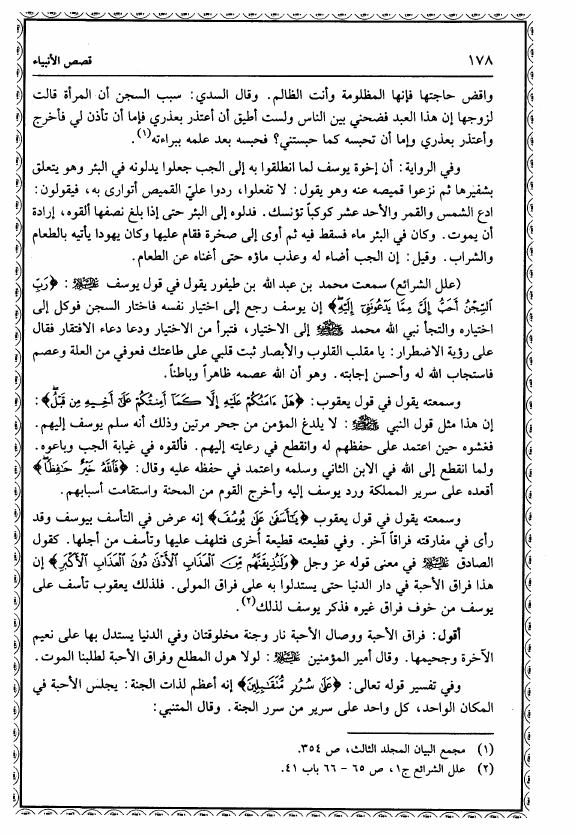 ١٧٨ قصص الأنبياء
واقض حاجتها فإنها المظلومة وأنت الظالم. وقال السدي: سبب السجن أن المرأة قالت
لزوجها إن هذا العبد فضحني بين الناس ولست أطيق أن أعتذر بعذري فإما أن تأذن لي فأخرج
وأعتذر بعذري وإما أن تحبسه كما حبستني؟ فحبسه بعد علمه ببراءته(١).
وفي الرواية: أن إخوة يوسف لما انطلقوا به إلى الجب جعلوا يدلونه في البئر وهو يتعلق
بشفيرها ثم نزعوا قميصه عنه وهو يقول: لا تفعلوا، ردوا عليّ القميص أتوارى به، فيقولون:
ادع الشمس والقمر والأحد عشر كوكباً تؤنسك. فدلوه إلى البئر حتى إذا بلغ نصفها ألقوه، إرادة
أن يموت. وكان في البئر ماء فسقط فيه ثم أوى إلى صخرة فقام عليها وكان يهودا يأتيه بالطعام
والشراب. وقيل: إن الجب أضاء له وعذب ماؤه حتى أغناه عن الطعام.
(علل الشرائع) سمعت محمد بن عبد الله بن طيفور يقول في قول يوسف ﷺ: ﴿رَبِّ
ٱلسِّجْنُ أَحَبُّ إِلَىَّ مِمَّا يَدْعُونَنِىٓ إِلَيْهِ﴾ إن يوسف رجع إلى اختيار نفسه فاختار السجن فوكل إلى
اختياره والتجأ نبي الله محمد ﷺ إلى الاختيار، فتبرأ من الاختيار ودعا دعاء الافتقار فقال
على رؤية الاضطرار: يا مقلب القلوب والأبصار ثبت قلبي على طاعتك فعوفي من العلة وعصم
فاستجاب الله له وأحسن إجابته. وهو أن الله عصمه ظاهراً وباطناً.
وسمعته يقول في قول يعقوب: ﴿هَلْ ءَامَنُكُمْ عَلَيْهِ إِلَّا كَمَآ أَمِنتُكُمْ عَلَىٰٓ أَخِيهِ مِن قَبْلُ﴾:
إن هذا مثل قول النبي ﷺ: لا يلدغ المؤمن من جحر مرتين وذلك أنه سلم يوسف إليهم.
فغشوه حين اعتمد على حفظهم له وانقطع في رعايته إليهم. فألقوه في غيابة الجب وباعوه.
ولما انقطع إلى الله في الابن الثاني وسلمه واعتمد في حفظه عليه وقال: ﴿فَٱللَّهُ خَيْرٌ حَٰفِظًا﴾
أقعده على سرير المملكة ورد يوسف إليه وأخرج القوم من المحنة واستقامت أسبابهم.
وسمعته يقول في قول يعقوب ﴿يَٰٓأَسَفَىٰ عَلَىٰ يُوسُفَ﴾ إنه عرض في التأسف بيوسف وقد
رأى في مفارقته فراقاً آخر. وفي قطيعته قطيعة أُخرى فتلهف عليها وتأسف من أجلها. كقول
الصادق عليه السلام في معنى قوله عز وجل ﴿وَلَنُذِيقَنَّهُم مِّنَ ٱلْعَذَابِ ٱلْأَدْنَىٰ دُونَ ٱلْعَذَابِ ٱلْأَكْبَرِ﴾ إن
هذا فراق الأحبة في دار الدنيا حتى يستدلوا به على فراق المولى. فلذلك يعقوب تأسف على
يوسف من خوف فراق غيره فذكر يوسف لذلك(٢).
أقول: فراق الأحبة ووصال الأحبة نار وجنة مخلوقتان وفي الدنيا يستدل بها على نعيم
الآخرة وجحيمها. وقال أمير المؤمنين عليه السلام: لولا هول المطلع وفراق الأحبة لطلبنا الموت.
وفي تفسير قوله تعالى: ﴿عَلَىٰ سُرُرٍ مُّتَقَٰبِلِينَ﴾ إنه أعظم لذات الجنة: يجلس الأحبة في
المكان الواحد، كل واحد على سرير من سرر الجنة. وقال المتنبي:
(١) مجمع البيان المجلد الثالث، ص ٣٥٤.
(٢) علل الشرائع ج١، ص ٦٥ - ٦٦ باب ٤١.